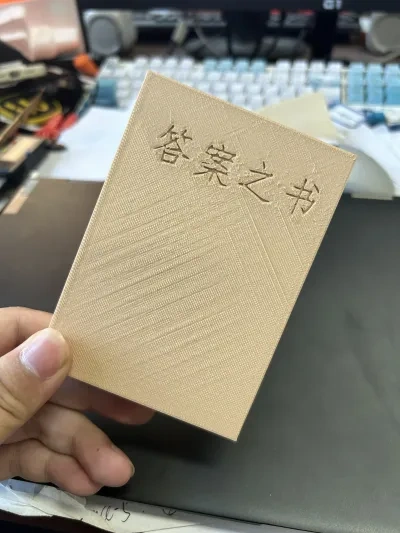 答案之书